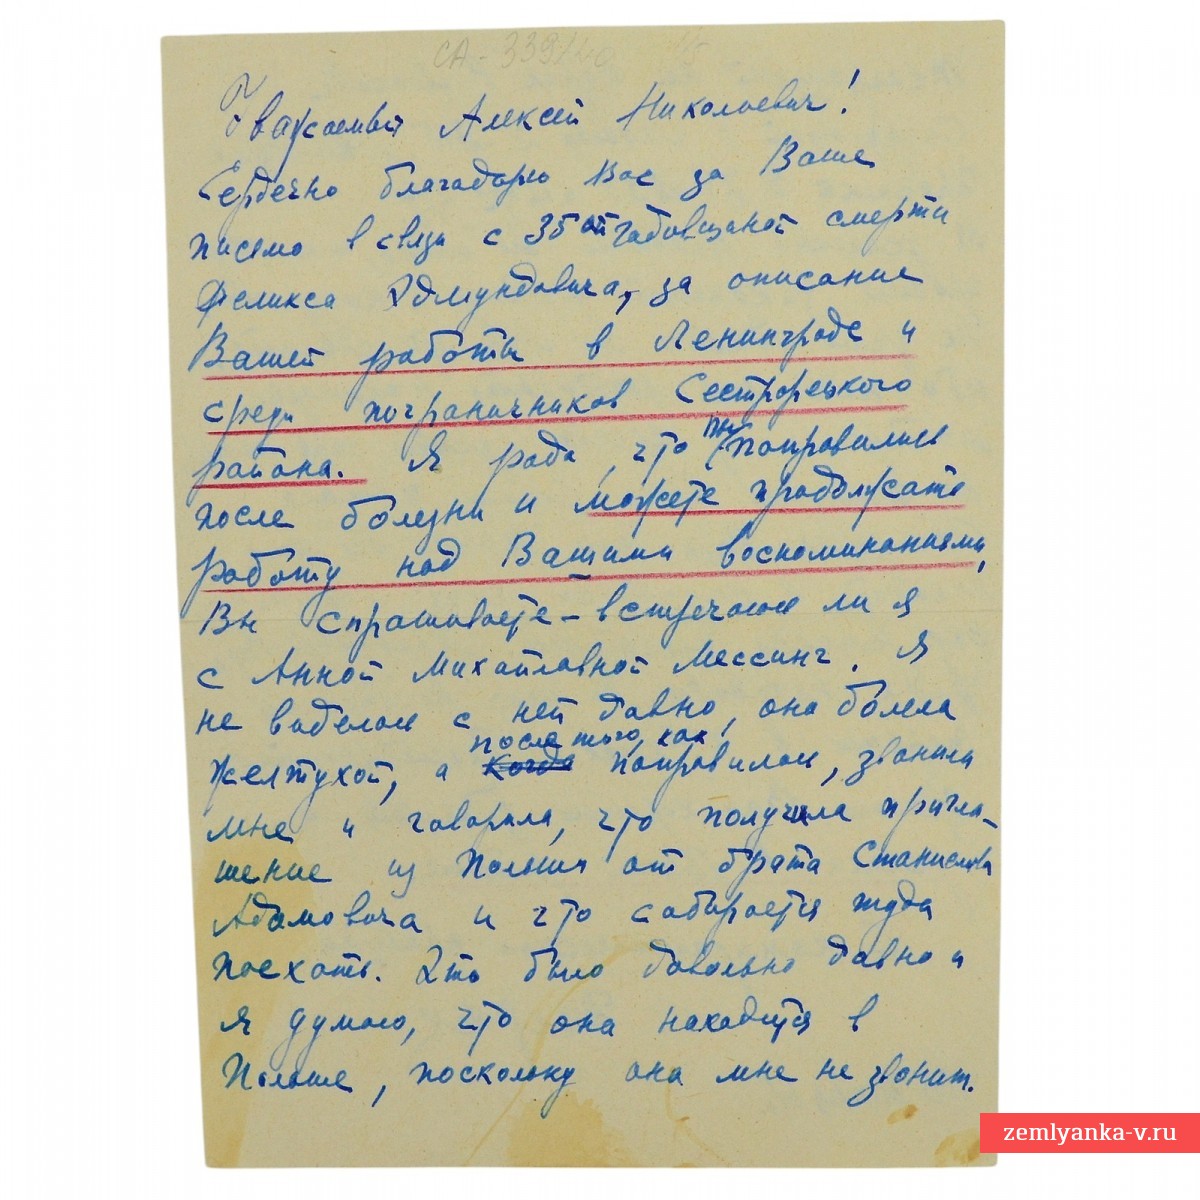 СА-339/40
Уважаемый Алексей Николаевич!
Сердечно благодарю Вас за Ваше
письмо в связи с 35ой годовщиной смерти
Феликса Эдмундовича, за описание
Вашей работы в Ленинграде и
среди пограничников Сестрорецкого
района. Я рада, что Вы поправились
после болезни и можете продолжать
работу над Вашими воспоминаниями,
Вы спрашиваете – встречаюсь ли я
с Анной Михайловной Мессинг. Я
не виделась с ней давно, она болела
желтухой, а после того, как
когда поправилась, звонила
мне и говорила, что получила пригла-
шение из Польши от брата Станислава
Адамовича и что собирается туда
поехать. Это было довольно давно и
я думаю, что она находится в
Польше, поскольку она мне не звонит.
zemlyanka-v.ru